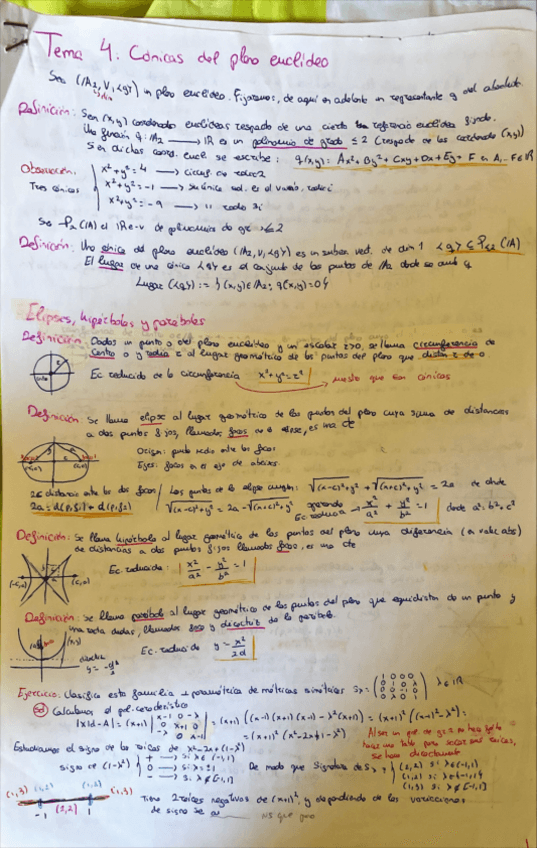 Tema 4: Cónicas del plano euclídeo
Sea (A₂, V, <g>) un plano euclídeo. Fijaremos, de aquí en adelante un representante g del
Definición: Sean (x,y) coordenadas euclídeas respecto de una cierta referencia euclídea fijada.
Una función q: A₂ → R es un polinomio de grado ≤ 2 (respecto de las coordenadas (x,y))
si en dichas coord. eucl se escribe: q(x,y) = Ax²+By²+Cxy+Dx+Ey+F con A,..F∈R
Observación:
Tres cónicas
x²+y²=4 → circunf. de radio 2
x²+y²=-1 → su única sol. es el vacío, radio i
x²+y²=-9 → " radio 3i
Sea P₂(A) el R e.v de polinomios de gr ≤2
Definición: Una cónica del plano euclídeo (A₂, V, <g>) es un subesp. vect. de dim 1 <q> ⊆ P≤2(A)
El lugar de una cónica <q> es el conjunto de los puntos de A₂ donde se anula q
Lugar (<q>) := {(x,y)∈A₂: q(x,y)=0}
Elipses, hipérbolas y parábolas
Definición: Dados un punto o del plano euclídeo y un escalar r>0, se llama circunferencia de
centro o y radio r al lugar geométrico de los puntos del plano que distan r de o
Ec. reducida de la circunferencia x²+y²=r² → puesto que son cónicas
Definición: Se llama elipse al lugar geométrico de los puntos del plano cuya suma de distancias
a dos puntos fijos, llamados focos de la elipse, es una cte
Origen: punto medio entre los focos
Ejes: focos en el eje de abscisas.
2c distancia entre los dos focos / Los puntos de la elipse cumplen: √((x-c)²+y²) + √((x+c)²+y²) = 2a de donde
2a = d(p,f₁) + d(p,f₂)
√((x-c)²+y²) = 2a - √((x+c)²+y²) operando Ec. reducida → x²/a² + y²/b² = 1 donde a² = b²+c²
Definición: Se llama hipérbola al lugar geométrico de los puntos del plano cuya diferencia (en valor abs)
de distancias a dos puntos fijos llamados focos, es una cte
(-c,0) (c,0)
Ec. reducida: x²/a² - y²/b² = 1
Definición: Se llama parábola al lugar geométrico de los puntos del plano que equidistan de un punto y
una recta dados, llamados foco y directriz de la parábola.
(x,y)
directriz
Ec. reducida y = x²/2d
Ejercicio: Clasifica esta familia 1-paramétrica de métricas simétricas λ∈R
Sol Calculamos el pol. característico
|xId-A| = (x+1) = (x+1)((x-1)(x+1)(x-1)-λ²(x+1)) = (x+1)²((x-1)²-λ²) =
= (x+1)²(x²-2x+1-λ²)
Al ser un pol. de gr 2 no hace falta
hacer una tabla para sacar sus raíces,
se hace directamente
Estudiamos el signo de las raíces de x²-2x+(1-λ²)
signo de (1-λ²)
+ → si λ∈(-1,1)
0 → si λ=±1
- → si λ∉[-1,1]
De modo que signatura de
(2,2) si λ∈(-1,1)
(1,2) si λ=-1,1
(1,3) si λ∉[-1,1]
(1,3) (1,2) (1,2) (1,3)
-1 (2,2) 1
Tiene 2 raíces negativas de (x+1)², y dependiendo de las variaciones
de signo se